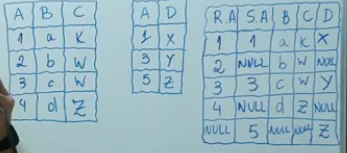 A B C
1 a K
2 b W
3 c W
4 d Z
A D
1 X
3 Y
5 Z
R.A S.A B C D
1 1 a K X
2 NULL b W NULL
3 3 c W Y
4 NULL d Z NULL
NULL 5 NULL NULL Z